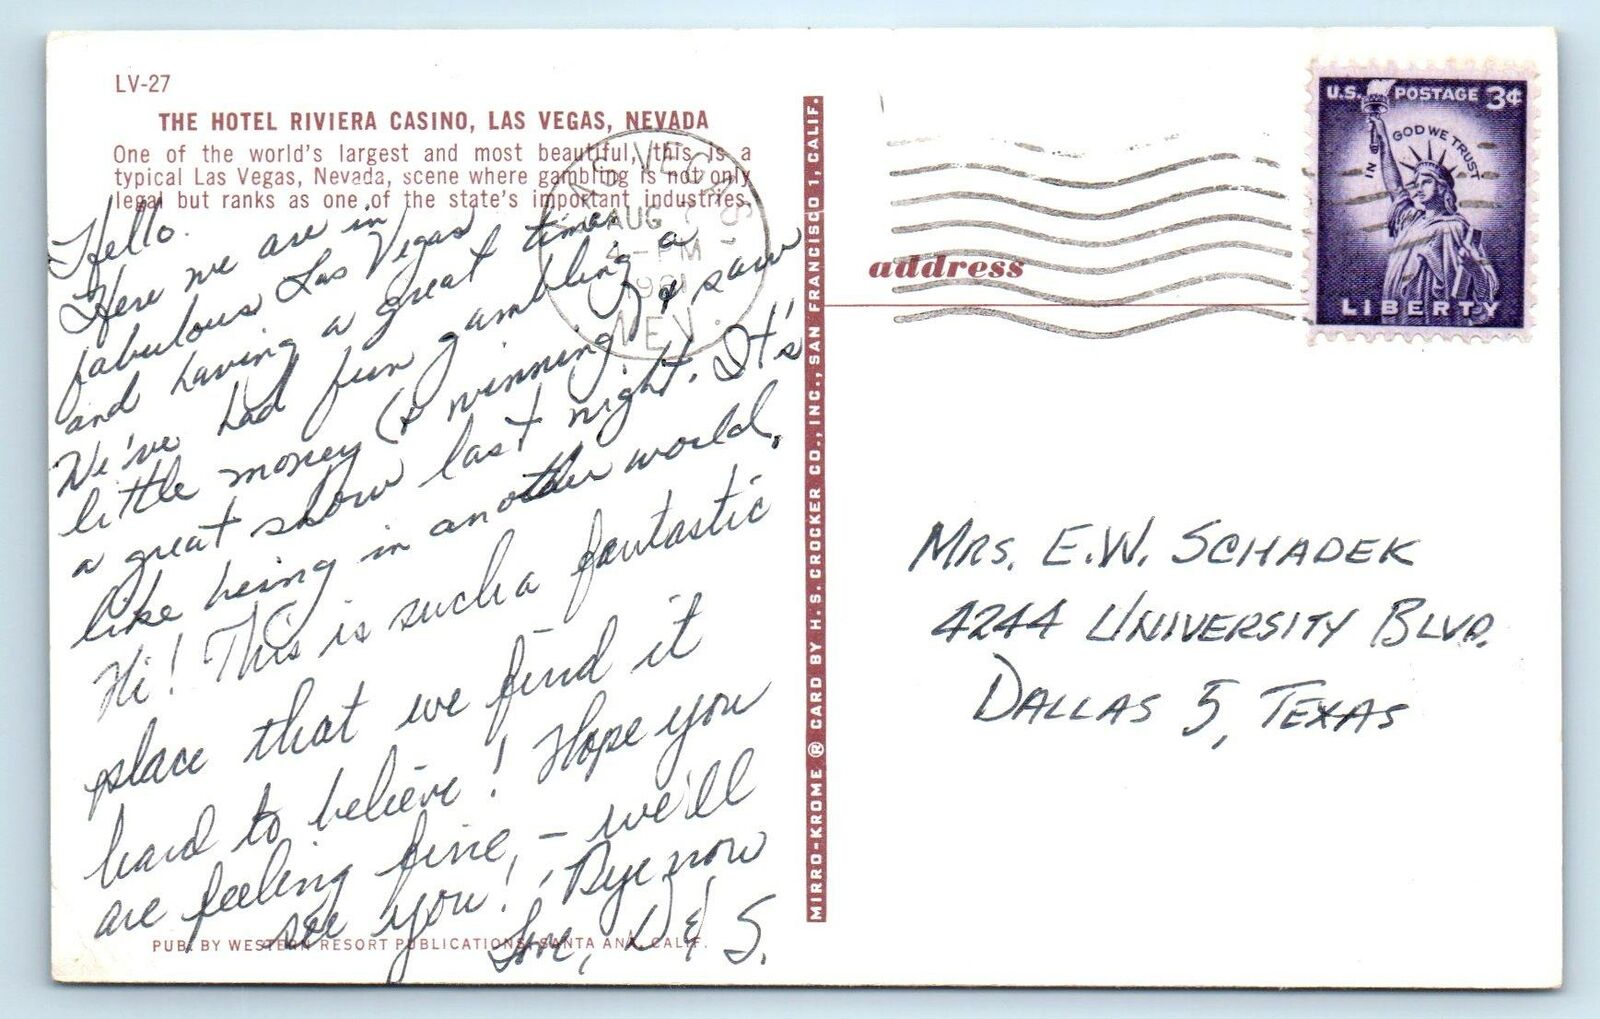 LV-27
THE HOTEL RIVIERA CASINO, LAS VEGAS, NEVADA
One of the world's largest and most beautiful, this is a
typical Las Vegas, Nevada, scene where gambling is not only
legal but ranks as one of the state's important industries.
Hello.
Here we are in
fabulous Las Vegas
and having a great time.
We've had fun gambling a
little money (& winning) & saw
a great show last night. It's
like being in another world.
Hi! This is such a fantastic
place that we find it
hard to believe! Hope you
are feeling fine, – we'll
see you! Bye now
Love, D & S.
PUB. BY WESTERN RESORT PUBLICATIONS, SANTA ANA, CALIF.
MIRRO-KROME ® CARD BY H. S. CROCKER CO., INC., SAN FRANCISCO 1, CALIF.
LAS VEGAS
AUG
4-PM
1961
NEV.
U.S. POSTAGE 3¢
IN GOD WE TRUST
LIBERTY
address
MRS. E.W. SCHADEK
4244 UNIVERSITY BLVD.
DALLAS 5, TEXAS